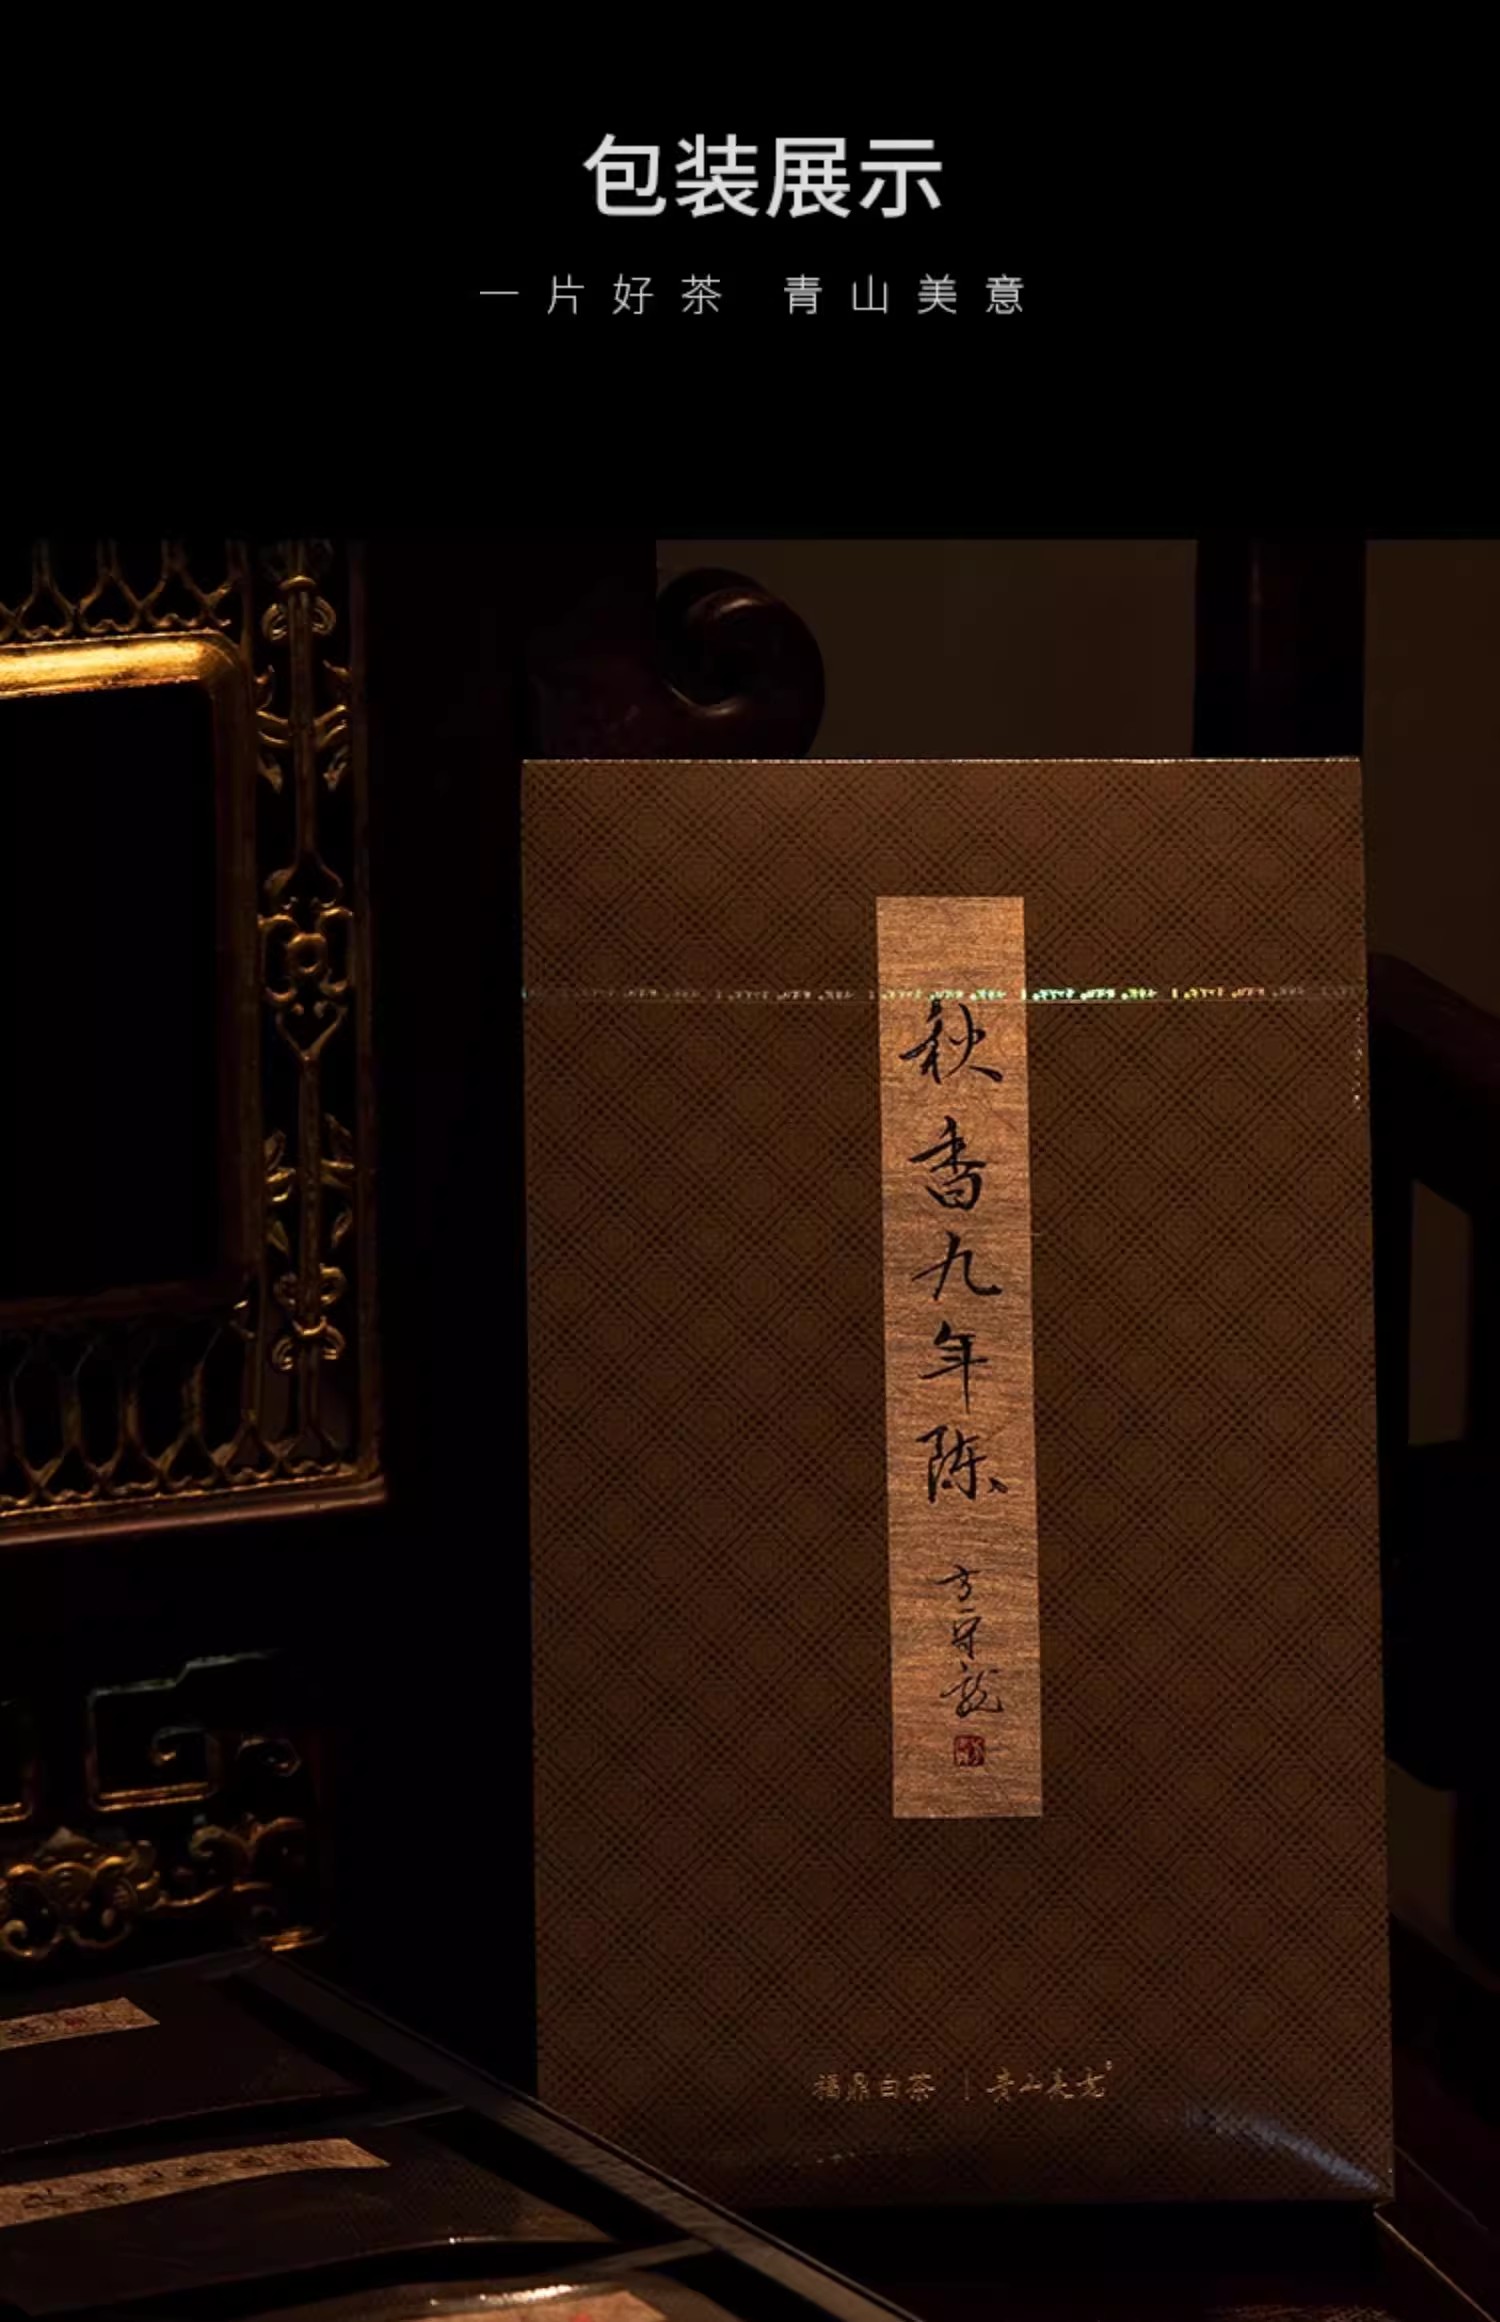 包装展示
一片好茶 青山美意
秋香九年陈
方守龙
福鼎白茶